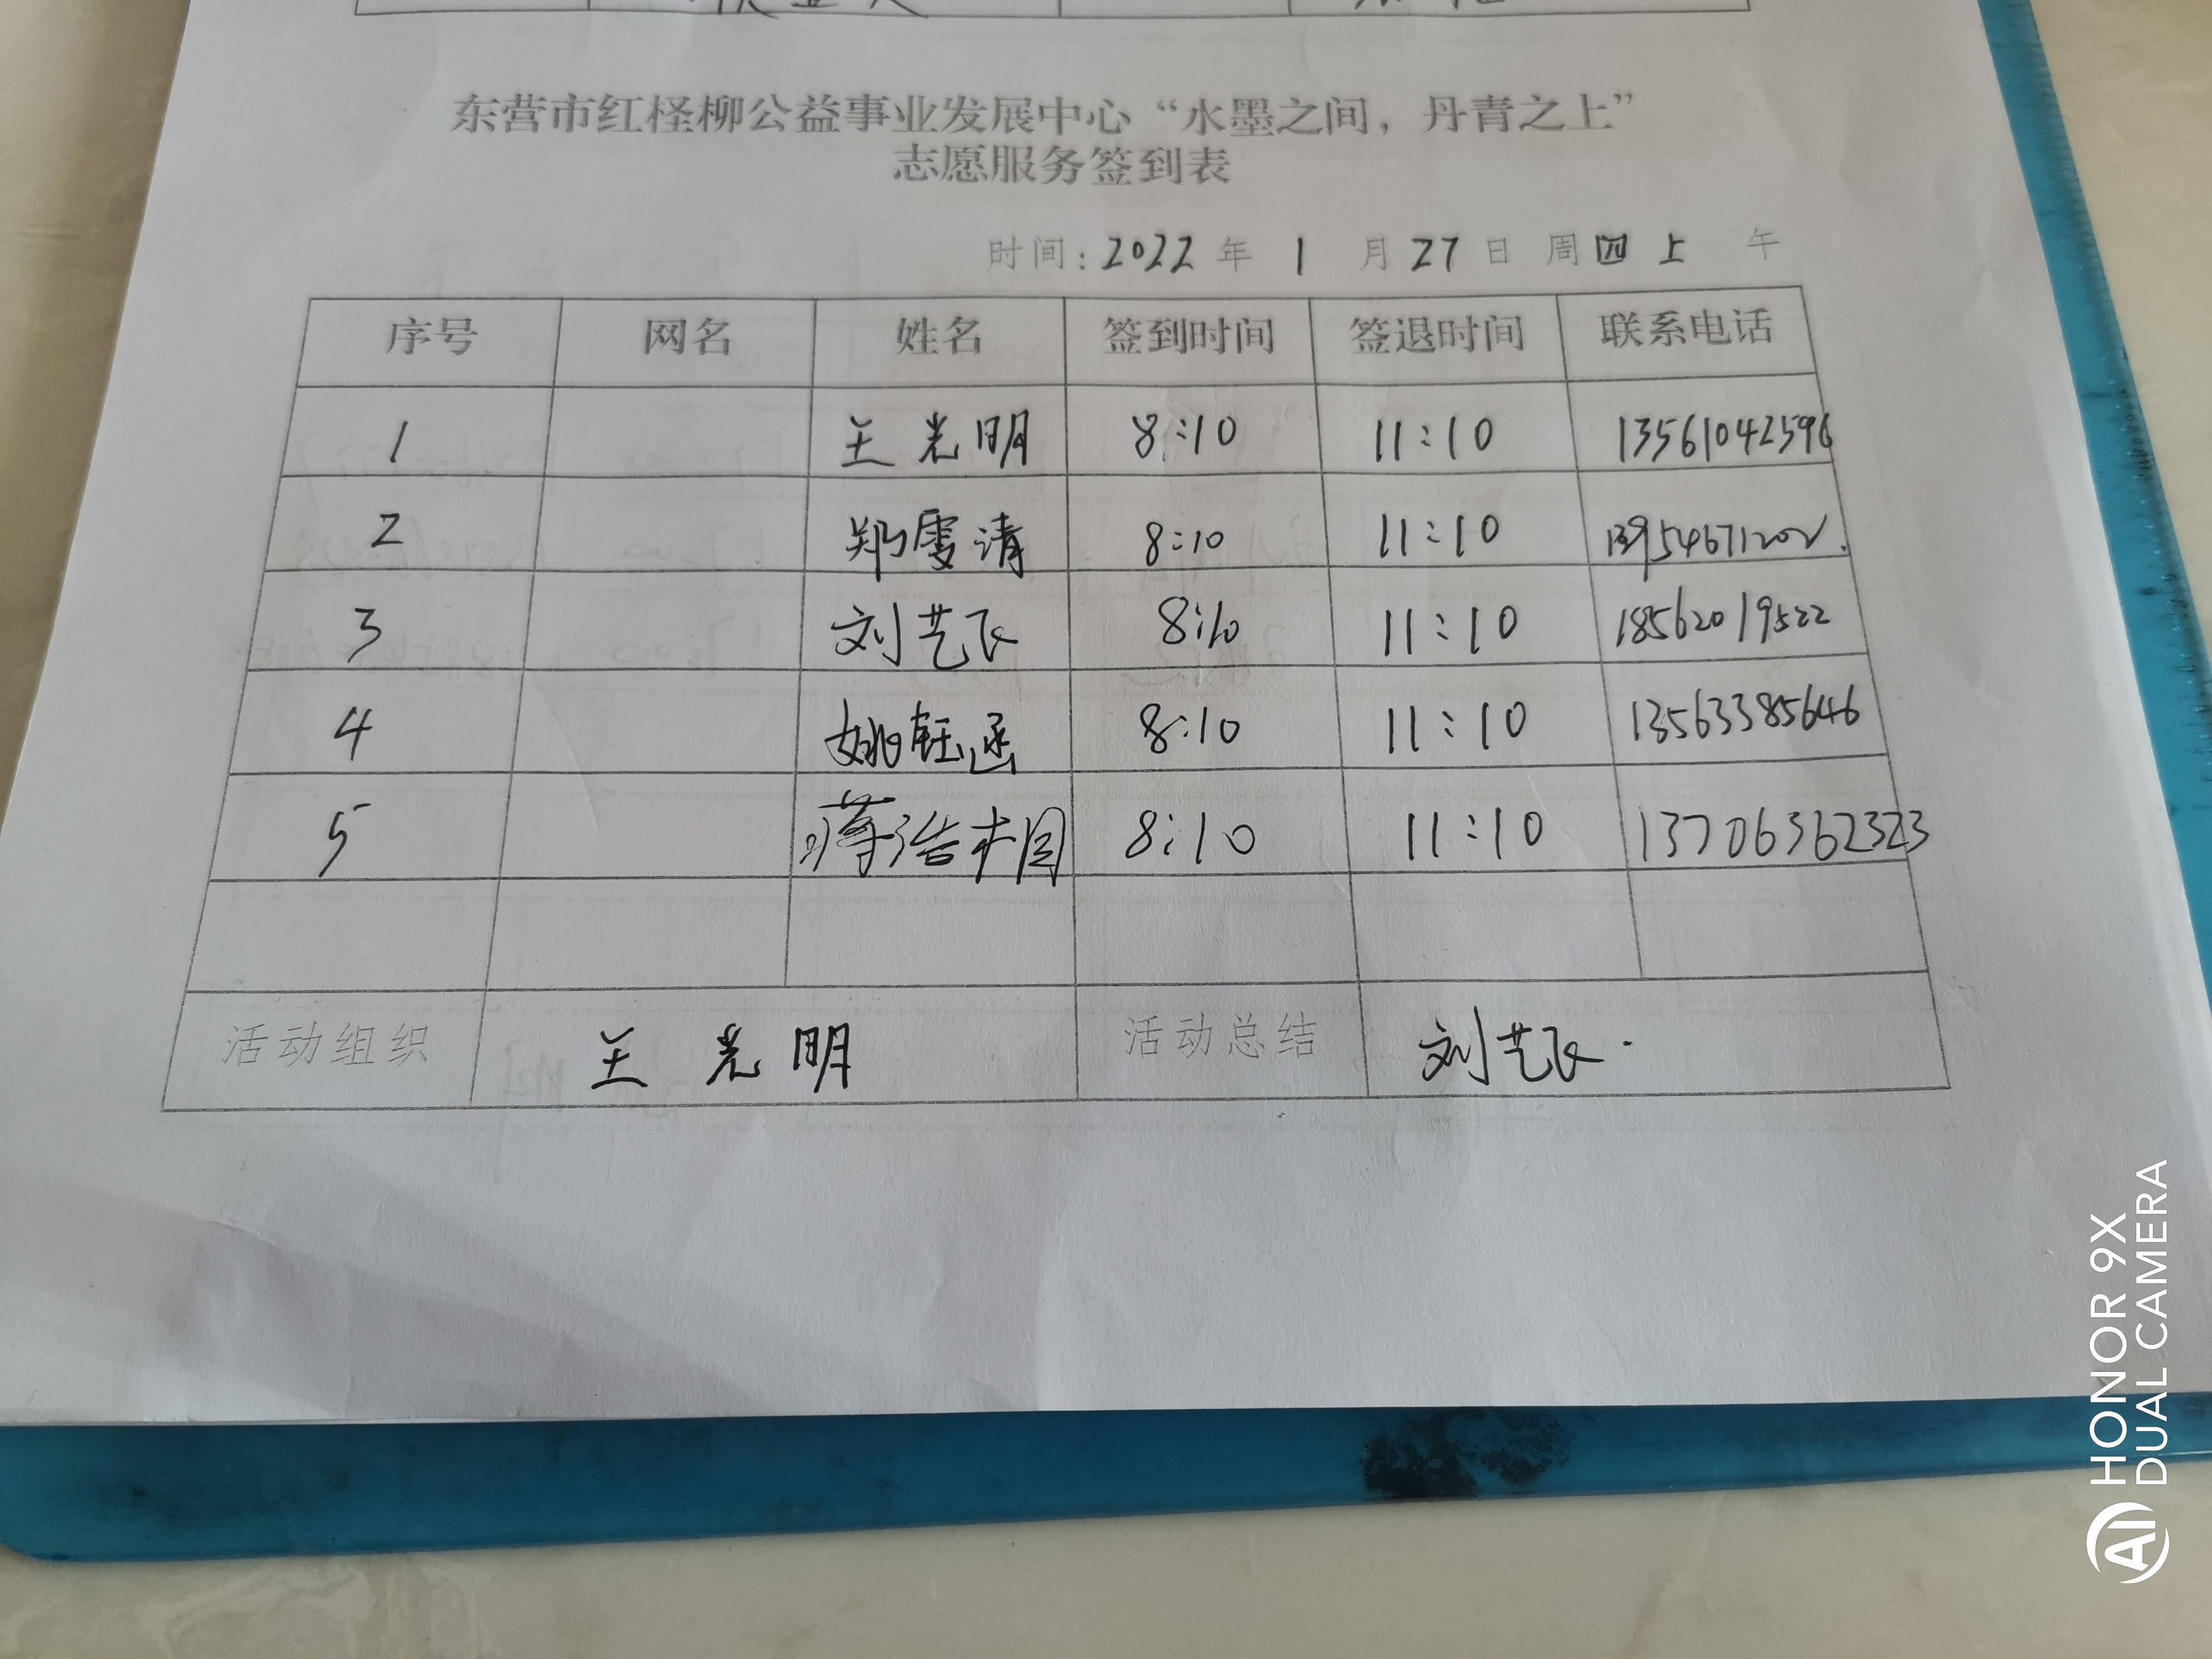 东营市红柽柳公益事业发展中心“水墨之间，丹青之上”
志愿服务签到表
时间：2022 年 1 月 27 日 周四 上 午
序号 网名 姓名 签到时间 签退时间 联系电话
1 王光明 8:10 11:10 13561042596
2 郑雯清 8:10 11:10 13954671202
3 刘艺飞 8:10 11:10 18562019522
4 姚钰涵 8:10 11:10 13563385646
5 蒋浩 8:10 11:10 13706362323
活动组织 王光明 活动总结 刘艺飞
HONOR 9X
DUAL CAMERA
AI